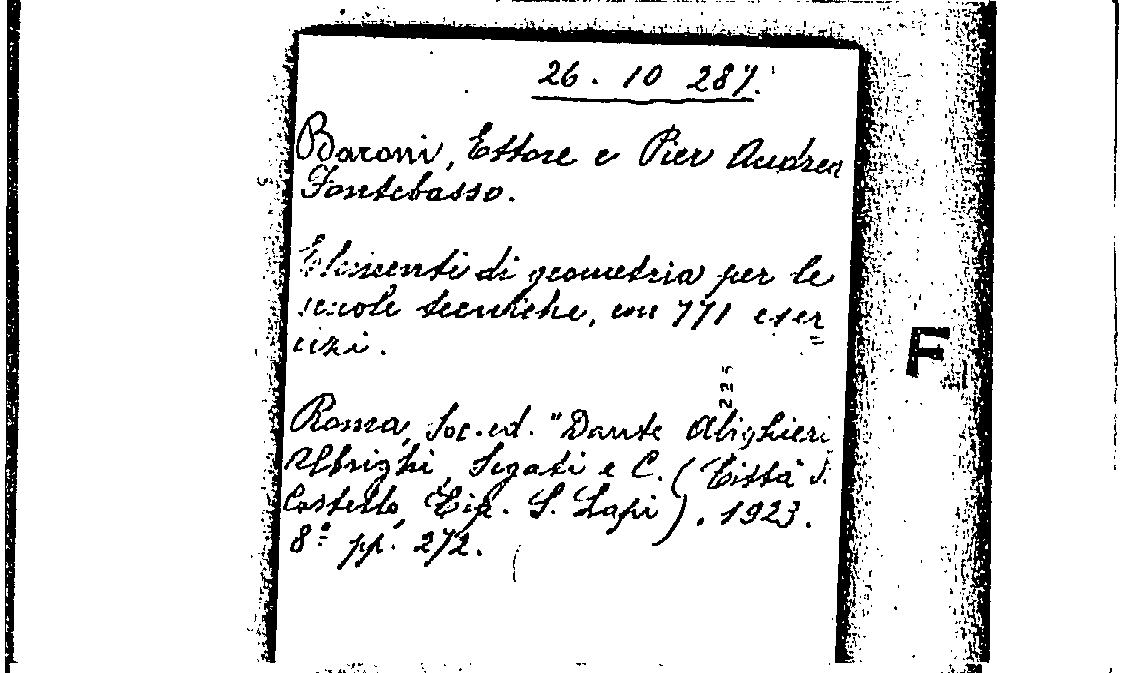 26. 10 287.
Baroni, Ettore e Pier Andrea
Fontebasso.
Elementi di geometria per le
scuole tecniche, con 771 eser=
cizi.
225
Roma, Soc. ed. "Dante Alighieri
Albrighi, Segati e C. (Città d.
Castello, Tip. S. Lapi). 1923.
8º pp. 272.
F